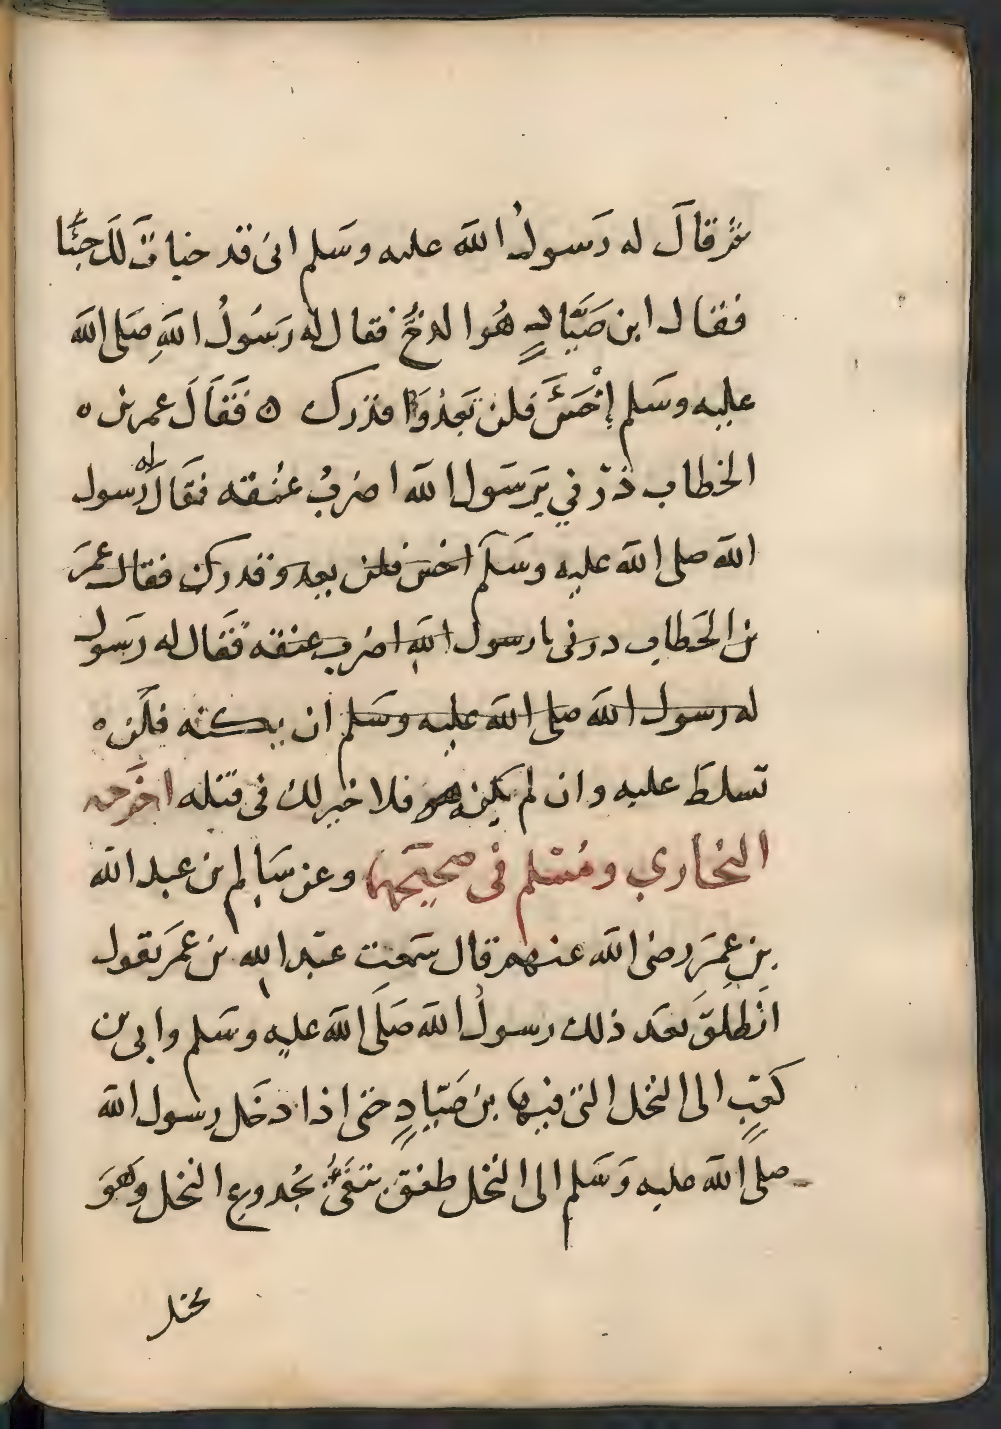 ثم قالَ له رَسولُ الله عليه وسَلم انى قد خبات لَكَ خبئًا
فقال ابن صَيَّادٍ هُوا لدخُّ فقال له رَسُولُ اللهِ صَلى الله
عليه وسَلم إخْسَئَ فلن تعدُوَا قدرك ه فَقَالَ عمر بن ه
الخطاب ذرْني يَرَسَول الله اضربُ عنُقه فقَالَ له رسول
الله صلى الله عليه وسَلَم اخس فلن يعد وقدرك فقال عمَرَ
بن الخَطاب درنى يا رسول الله اضرب عنقه فَقَال له رسَول
له رسول الله صلى الله عليه وسَلم ان يكنه فلَن ه
تسلطَ عليه وان لم يكن هو فلا خير لك فى قتله اخرَجه
البُخاري ومُسْلم فى صحيحَيهما وعن سَالم بن عبد الله
بنِ عمِرَ رضى الله عنهم قال سَمعت عبْد الله بن عمَر يقول
انطلقَ بعَد ذلك رسولُ الله صَلَى الله عليه وسَلم وابى بن
كعبٍ الى النخل التى فيها بن صَيّادٍ حتى اذا دخَل رسول الله
صلى الله عليه وَسَلم الى النخل طفق يتقَى بُجدوع النخل وَهوَ
يختل